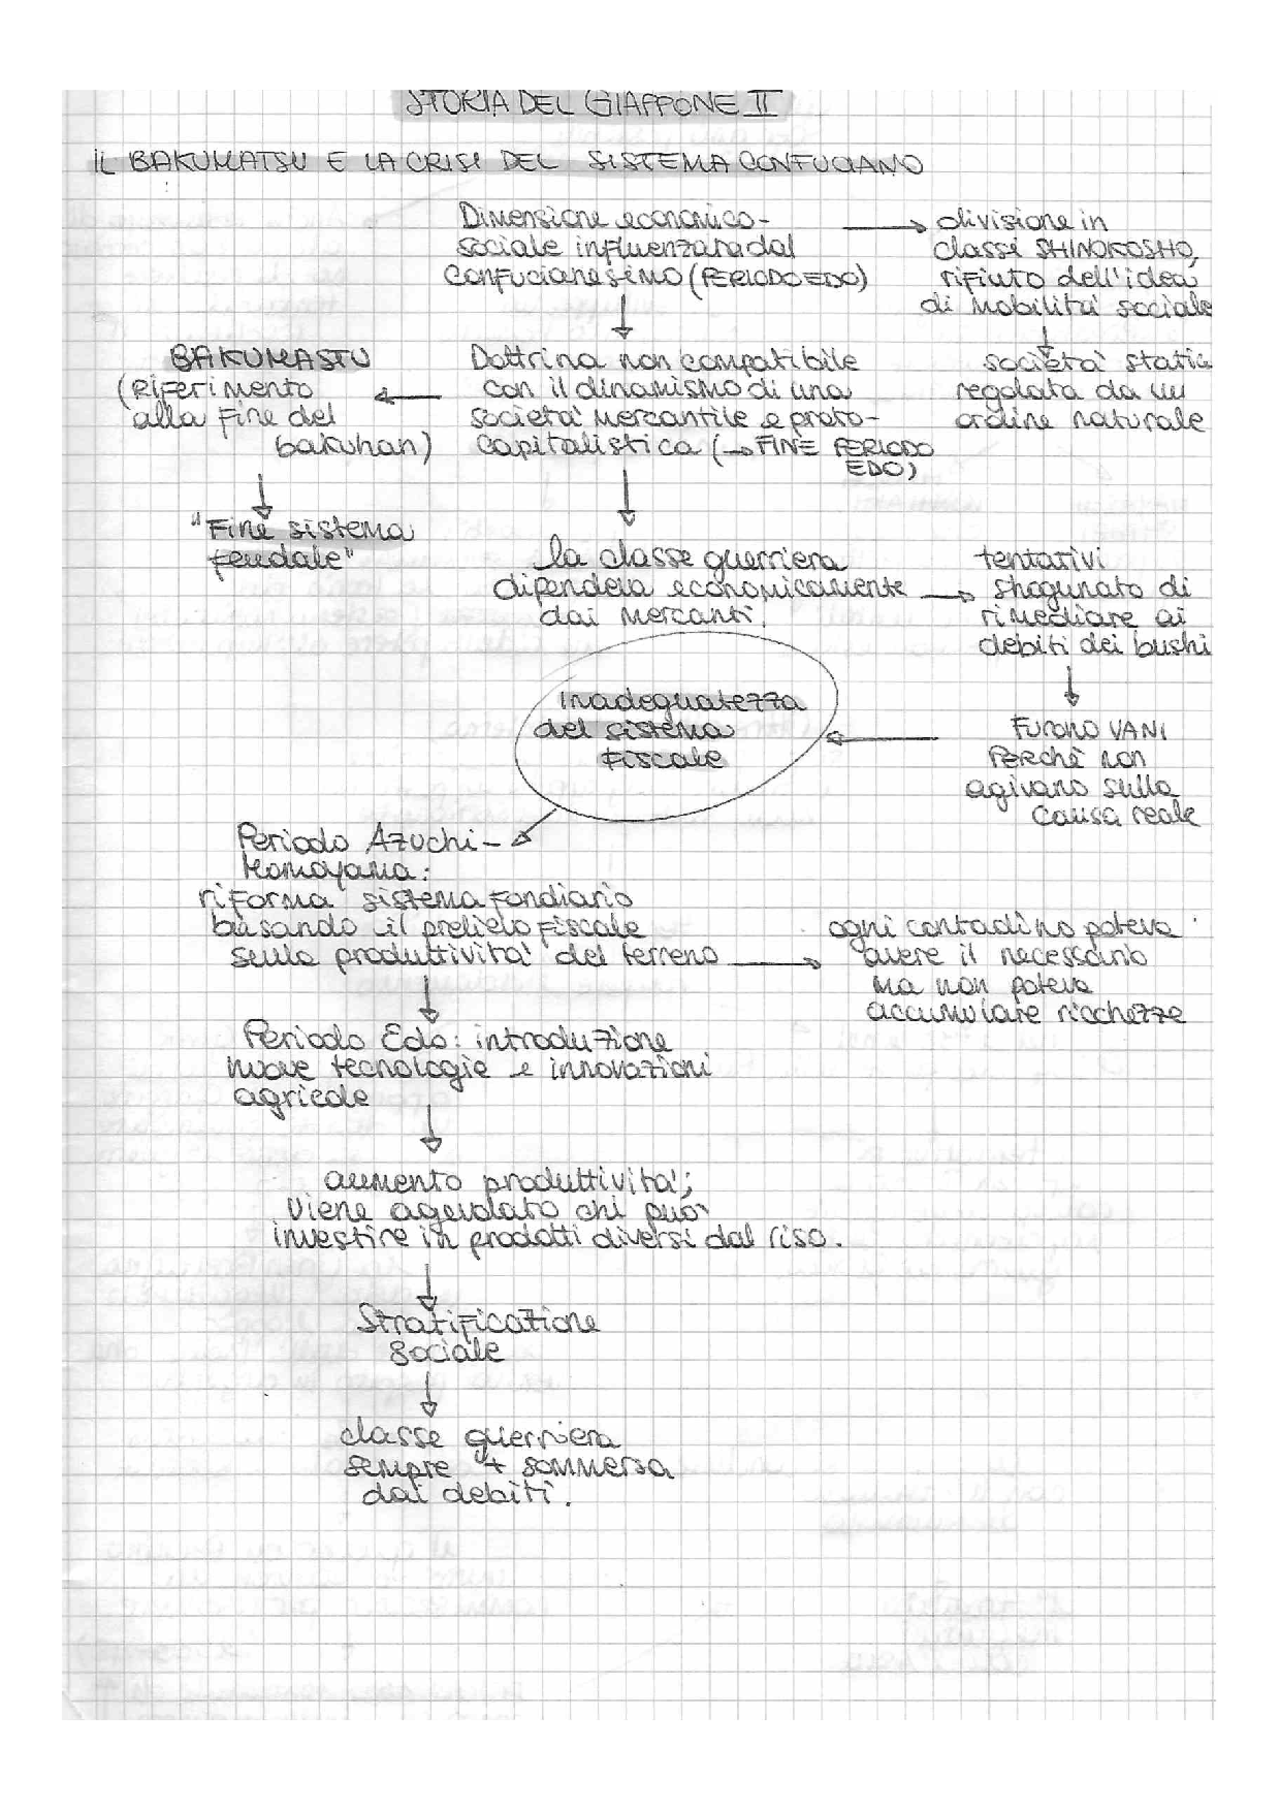 STORIA DEL GIAPPONE II
IL BAKUMATSU E LA CRISI DEL SISTEMA CONFUCIANO
Dimensione economico-
sociale influenzara dal
Confucianesimo (PERIODO EDO)
divisione in
classi SHINOKOSHO,
rifiuto dell'idea
di mobilità sociale
BAKUMASTU
(Riferimento
alla fine del
bakuhan)
Dottrina non compatibile
con il dinamismo di una
società mercantile e proto-
capitalistica (→ FINE PERIODO
EDO)
società static
regolata da un
ordine naturale
"Fine sistema
feudale"
la classe guerriera
dipendeva economicamente
dai mercanti.
tentativi
shogunato di
rimediare ai
debiti dei bushi
Inadeguatezza
del sistema
fiscale
FURONO VANI
Perchè non
agivano sulla
causa reale
Periodo Azuchi-
Momoyama:
riforma sistema fondiario
basando il prelievo fiscale
sulla produttività del terreno
ogni contadino poteva
avere il necessario
ma non poteva
accumulare ricchezze
Periodo Edo: introduzione
nuove tecnologie e innovazioni
agricole
aumento produttività;
viene agevolato chi può
investire in prodotti diversi dal riso.
Stratificazione
sociale
classe guerriera
sempre + sommersa
dai debiti.